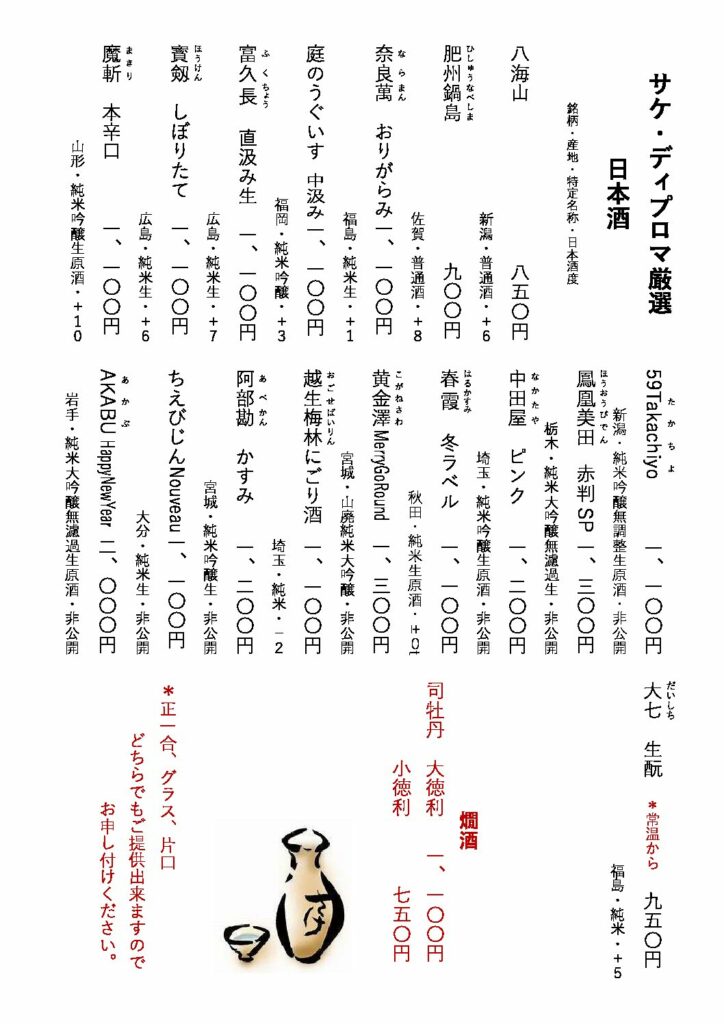 サケ・ディプロマ厳選
日本酒
銘柄・産地・特定名称・日本酒度
八海山 八五〇円
新潟・普通酒・+6
ひしゅうなべしま
肥州鍋島 九〇〇円
佐賀・普通酒・+8
ならまん
奈良萬 おりがらみ 一、一〇〇円
福島・純米生・+1
庭のうぐいす 中汲み 一、一〇〇円
福岡・純米吟醸・+3
ふくちょう
富久長 直汲み生 一、一〇〇円
広島・純米生・+7
ほうけん
寳劔 しぼりたて 一、一〇〇円
広島・純米生・+6
まさり
魔斬 本辛口 一、一〇〇円
山形・純米吟醸生原酒・+10
たかちよ
59Takachiyo 一、一〇〇円
新潟・純米吟醸無調整生原酒・非公開
ほうおうびでん
鳳凰美田 赤判SP 一、三〇〇円
栃木・純米大吟醸無濾過生・非公開
なかたや
中田屋 ピンク 一、二〇〇円
埼玉・純米吟醸生原酒・非公開
はるかすみ
春霞 冬ラベル 一、一〇〇円
秋田・純米生原酒・
こがねさわ
黄金澤MerryGoRound 一、三〇〇円
宮城・山廃純米大吟醸・非公開
おごせばいりん
越生梅林にごり酒 一、一〇〇円
埼玉・純米・−2
あべかん
阿部勘 かすみ 一、二〇〇円
宮城・純米吟醸生・非公開
ちえびじんNouveau 一、一〇〇円
大分・純米生・非公開
あかぶ
AKABU HappyNewYear 二、〇〇〇円
岩手・純米大吟醸無濾過生原酒・非公開
だいしち
大七 生酛 *常温から 九五〇円
福島・純米・+5
燗酒
司牡丹 大徳利 一、一〇〇円
小徳利 七五〇円
*正一合、グラス、片口
どちらでもご提供出来ますので
お申し付けください。